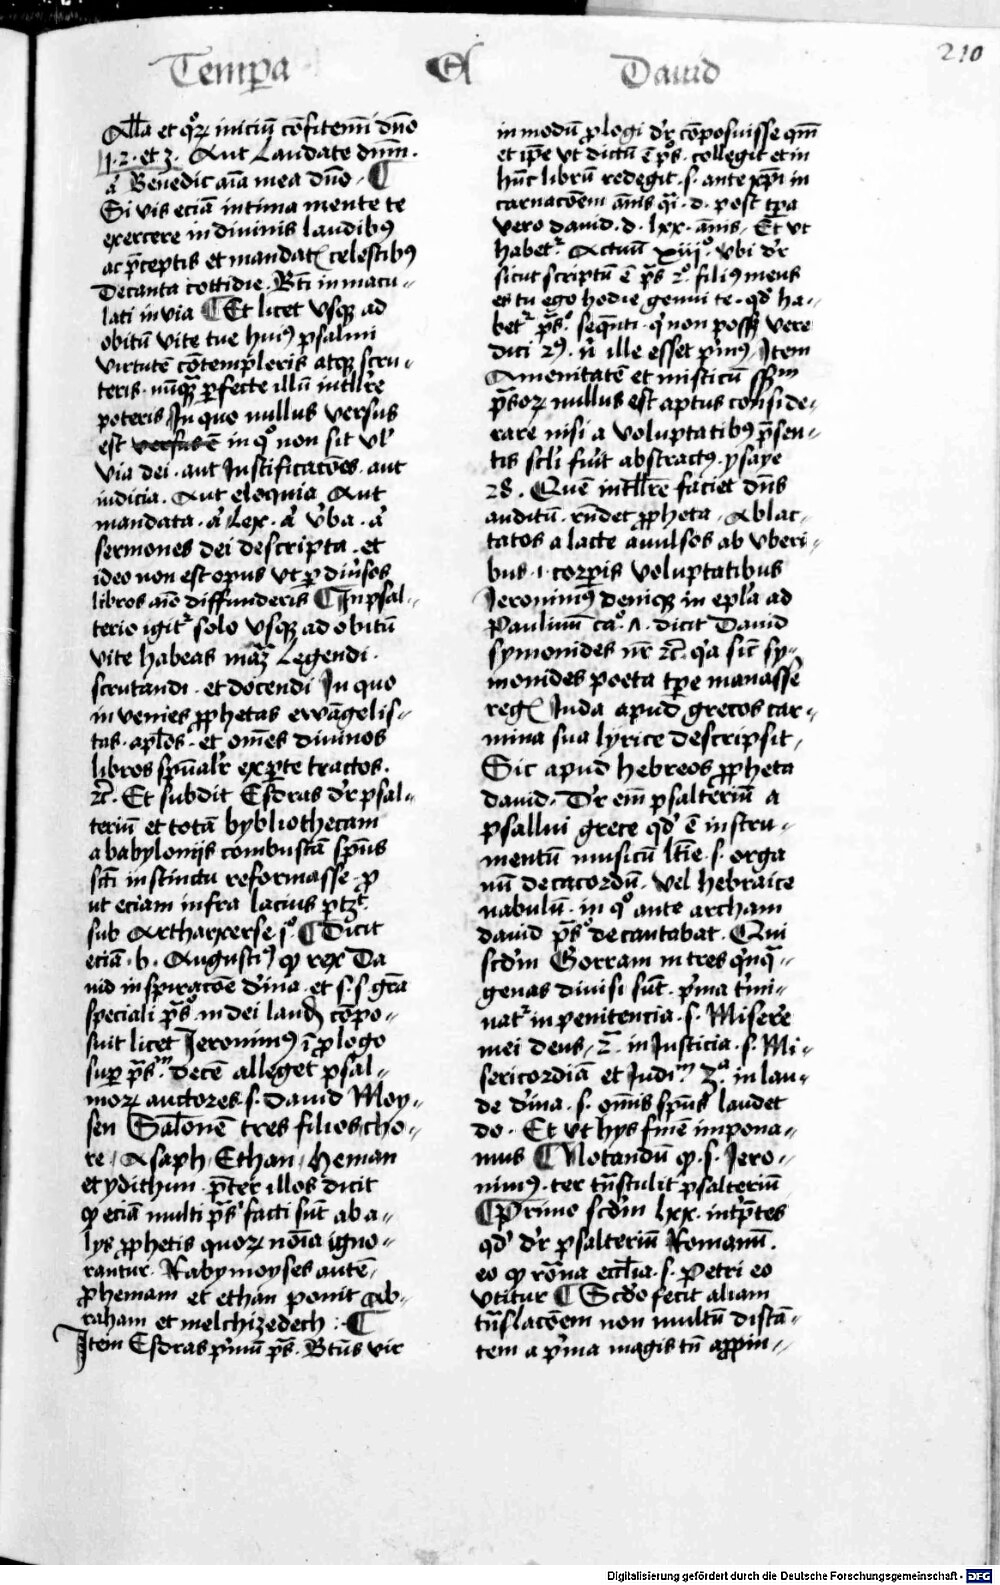 Tempa Et Dauid
210
Alla et qꝛ iniciū cōfitemī dnō
1. 2. et 3. Aut Laudate dnm̄.
a͛ Benedic aīa mea dnō. ¶
Si vis eciā intima mente te
exercere in diuinis laudibꝯ
ac p̄ceptis et mandatꝭ celestibꝯ
Decanta cottidie. Btī inmacu-
lati in via ¶ Et licet vsqꝫ ad
obitū vite tue huiꝰ psalmi
virtutē cōtempleris atqꝫ scru-
teris. nūqꝫ ꝑfecte illū intllr̄e
poteris In quo nullus versus
est versus ē in qͦ non sit vl̓
via dei. aut Iustificacōes. aut
iudicia. Aut eloquia Aut
mandata. a͛ Lex. a͛ v̓ba. a͛
sermones dei descripta. et
ideo non est opus vt ꝑ diu̓sos
libros aīo diffunderis ¶ In psal-
terio igitᷣ solo vsqꝫ ad obitū
vite habeas māꝫ Legendi.
scrutandi. et docendi In quo
in venies ꝓphetas ewāgelis-
tas. apl̄os. et om̄es diuinos
libros spūalr̓ exꝑte tractos.
⁊c̄. Et subdit Esdras dr̓ psal-
teriū et totā bybliothecam
a babylonijs combustā spūs
sctī instinctu reformasse. ꝓ
ut eciam infra lacius ptꝫᵗ
sub Artharxerse jͦ. ¶ Dicit
eciā. b. Augustiꝰ ꝙ rex Da
uid inspiracōe d'ina. et s. s. gr̄a
speciali p̄s in dei laudꝭ cōpo-
suit licet Ieronimꝰ ī ꝓlogo
suꝑ p̄s. decē alleget psal-
moꝝ auctores. s. dauid Moy-
sen Salōnē tres filios cho-
re, Asaph, Ethan, heman
et ydithun. p̄ter illos dicit
ꝙ eciā multi p̄s facti sūt ab a-
lys ꝓphetis quoꝝ nōīa igno-
rantur. Raby moyses autē,
ꝓ hemam et ethan ponit ab-
raham et melchizedech: ¶
Itē Esdras p'mū p̄s. Btūs vir
in modū ꝓlogi dr̓ cōposuisse qm̄
et ip̄e vt dictū ē p̄s. collegit et in
hūc librū redegit. s. ante xp̄i in
carnacōem ānis
vero dauid. d. lxx. ānis. Et vt
habetᷣ Actuū xiijͦ. vbi dr̓
sicut scriptū ē p̄s 2ͦ. filiꝰ meus
es tu ego hodie genui te. qd̓ ha-
betᷣ p̄sͦ. seqn̄ti. qͥ non possꝫ vere
dici 2ꝰ. n̓ ille esset p'mꝰ, Item
Amenitatē et misticū ss̄m
p̄soꝝ nullus est aptus conside-
rare nisi a voluptatibꝯ p̄sen-
tis scl̓i fu'it abstractꝰ. ysaye
28. Quē intllr̄e faciet dn̄s
auditū. rn̄det ꝓpheta. Ablac-
tatos a lacte auulsos ab vberi-
bus. i. corꝑis voluptatibus
Ieronimꝰ deniqꝫ in epl̄a ad
Paulinū caͦ. Λ. dicit Dauid
symonides nr̄ ⁊c̄. qa sic̄ sy-
monides poeta tp̄e manasse
regꝭ Iuda apud grecos car-
mina sua lyrice descripsit,
Sic apud hebreos ꝓpheta
dauid. Dr̓ em̄ psalteriū a
psallui grece qd̓ ē instru-
mentū musicū lt̄ie. s. orga
nū decacordū. vel hebraice
nabulū. in qͦ ante archam
dauid p̄sͦ decantabat. Qui
scd̓m Gorram in tres qͥnqͣ-
genas diuisi sūt. p'ma t'mi-
natᷣ in penitencia. s. Misere
mei deus, 2ͣ. in Iusticia. s. Mi-
sericordiā et Iudiᵐ 3ͣ. in lau-
de d'ina. s. om̄is spūs laudet
do. Et vt hys finē impona-
mus ¶ Notandū ꝙ. s. Iero-
nimꝰ. ter tn̄stulit psalteriū
¶ Primo scd̓m lxx. int'p̄tes
qd̓ dr̓ psalteriū Romanū.
eo ꝙ rōna eccl̄ia. s. petri eo
vtitur ¶ Scd̓o fecit aliam
tn̄slacōem non multū distā-
tem a p'ma magis tn̄ aꝓpin-
Digitalisierung gefördert durch die Deutsche Forschungsgemeinschaft - DFG